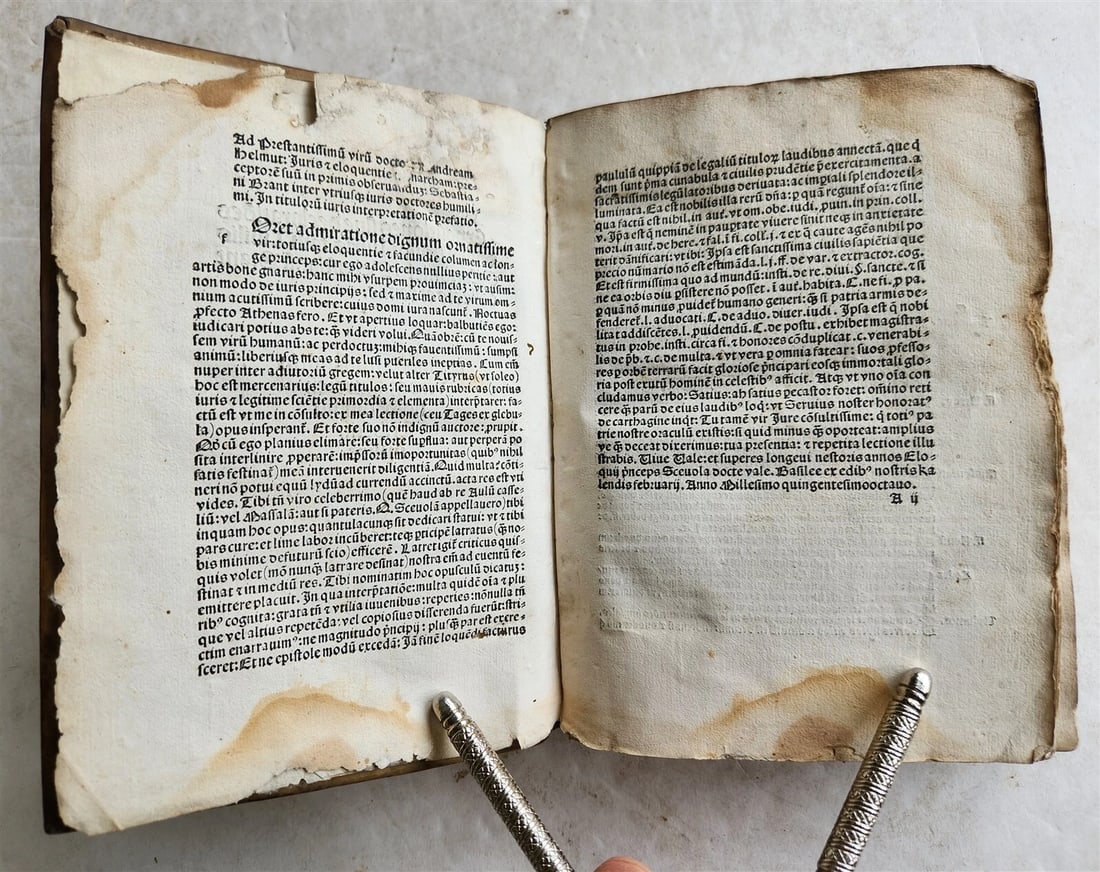 Ad Prestantissimũ virũ docto Andream
Helmut: Juris ⁊ eloquentie archam: pre-
ceptorẽ suũ in primis obseruandũ: Sebastia-
ni Brant inter vtriusqꝫ iuris doctores humili-
mi. In titulorũ iuris interpretationẽ prefatio.
f
Oret admiratione dignum ornatissime
vir: totiusqꝫ eloquentie ⁊ facundie columen ac lon-
ge princeps: cur ego adolescens nullius penitꝰ: aut
artis bone gnarus: hanc mihi vsurpem prouinciaꝫ: vt ausim:
non modo de iuris principijs: sed ⁊ maxime ad te virum om-
nium acutissimũ scribere: cuius domi iura nascunt̃. Noctuas
ꝓfecto Athenas fero. Et vt apertius loquar: balbutiẽs ego:
iudicari potius abs te: qꝫ̃ videri volui. Quãobrẽ: cũ te nouis-
sem virũ humanũ: ac perdoctuꝫ: mihiqꝫ fauentissimũ: sumpsi
animũ: liberiusqꝫ meas ad te lusi pisterales ineptias. Cum em̃
nuper inter adiutoriũ gregem: velut alter Tityrus (vt soleo)
hoc est mercenarius: legũ titulos: seu mauis rubricas (totius
iuris ⁊ legitime sciẽtie primordia ⁊ elementa) interp̃tarer: fac-
tũ est vt me in cõsulto: ex mea lectione (ceu Tages ex glebu-
la) opus insperant̃. Et forte suo nõ indignũ auctore: ꝓrupit.
Qõ cũ ego planius elimare: seu forte suꝑflua: aut perperã po
sita interlinire ꝓperarẽ: imp̃ssorũ imoportunitas (quibꝰ nihil
satis festinat̃) meã interuenerit diligentiã. Quid multa? cõti-
neri nõ potui equũ lydũ ad currendũ accinctũ. acta res est vti
vides. Tibi tñ viro celeberrimo (quẽ haud ab re Aulũ casse-
liũ: vel Massalã: aut si pateris. Q. Sceuolã appellauero) tibi
inquam hoc opus: quantulacunqꝫ sit dedicari statui: vt ⁊ tibi
pars cure: et lime labor incũberet: teqꝫ p̃ticipẽ latratus (q̃ no-
bis minime defuturũ scio) efficerẽ. Latret igit̃ criticus quis-
quis volet (mõ nunqꝫ̃ latrare desinat) nostra em̃ ad euentũ fe-
stinat ⁊ in mediũ res. Tibi nominatim hoc opusculũ dicatuꝫ:
emittere placuit. In qua interp̃tatiõe: multa quidẽ oĩa ⁊ plu
ribꝰ cognita: grata tñ ⁊ vtilia iuuenibus: reperies: nõnulla tñ
que vel altius repetẽda: vel copiosius differenda fuerũt: stri-
ctim enarrauimꝰ: ne magnitudo p̃ncipij: plusqꝫ̃ par est excre-
sceret: Et ne epistole modũ excedã: Jã finẽ loquẽdi facturus
paululũ quippiã de legaliũ titulorꝫ laudibus annectã. que q̃
dem sunt p̃ma cunabula ⁊ ciuilis prudẽtie p̃exercitamenta. a
sacratissimis legũlatoribus deriuata: ac impiali splendore il-
luminata. Ea est nobilis illa rerũ dñã: ꝑ quã regunt̃ oĩa: ⁊ sine
qua factũ est nihil. in aut̃. vt om. obe. iudi. ꝓuin. in prin. coll.
v. Jp̃a est q̃ neminẽ in pauꝑtate viuere sinit neqꝫ in anxietate
mori. in aut̃. de here. ⁊ fal. §. fi. coll. j. ⁊ ex q̃ caute agẽs nihil po
terit dãnificari: vt ibi: Jpsa est sanctissima ciuilis sapiẽtia que
precio nũmario nõ est estimãda. l. j. ff. de var. ⁊ extractor. cog.
Et est firmissima quo ad mundũ: insti. de re. diui. §. sancte. ⁊ si
ne ea orbis diu ꝑsistere nõ posset. ĩ aut̃. habita. C. ne fi. ꝓ pa.
ꝑ quã nõ minus ꝓuidet̃ humano generi: qꝫ̃ si patria armis de-
fenderet̃. l. aduocati. C. de aduo. diuer. iudi. Jpsa est q̃ nobi
litat addiscẽtes. l. ꝓuidendũ. C. de postu. exhibet magistra-
tus in prohe. insti. circa fi. ⁊ honores cõduplicat. c. venerabi-
lis de p̃b. ⁊ c. de multa. ⁊ vt vera ꝑ omnia fatear: suos ꝓfesso-
res ꝑ orbẽ terrarũ facit gloriose p̃ncipari eosqꝫ immortali glo-
ria post exutũ hominẽ in celestibꝰ afficit. Atqꝫ vt vno oĩa con
cludamus verbo: Satius: ab satius pecastor foret: om̃ino reti
cere qꝫ̃ parũ de eius laudibꝰ loq̃: vt Seruius noster honoratꝰ
de carthagine inq̃t: Tu tamẽ vir Jure cõsultissime: q̃ totiꝰ pa
trie nostre oraculũ existis: si quid minus qꝫ̃ oporteat: amplius
ve qꝫ̃ deceat dixerimus: tua presentia: ⁊ repetita lectione illu
strabis. Uiue Uale: et superes longeui nestoris annos Elo-
quij p̃nceps Sceuola docte vale. Basilee ex edibꝰ nostris ka
lendis februarij. Anno Millesimo quingentesimooctauo.
A ij